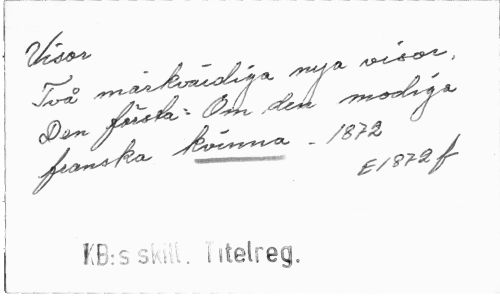 Visor
Två märkvärdiga nya visor.
Den första: Om den modiga
franska kvinna - 1872
E1872f
KB:s skill. Titelreg.